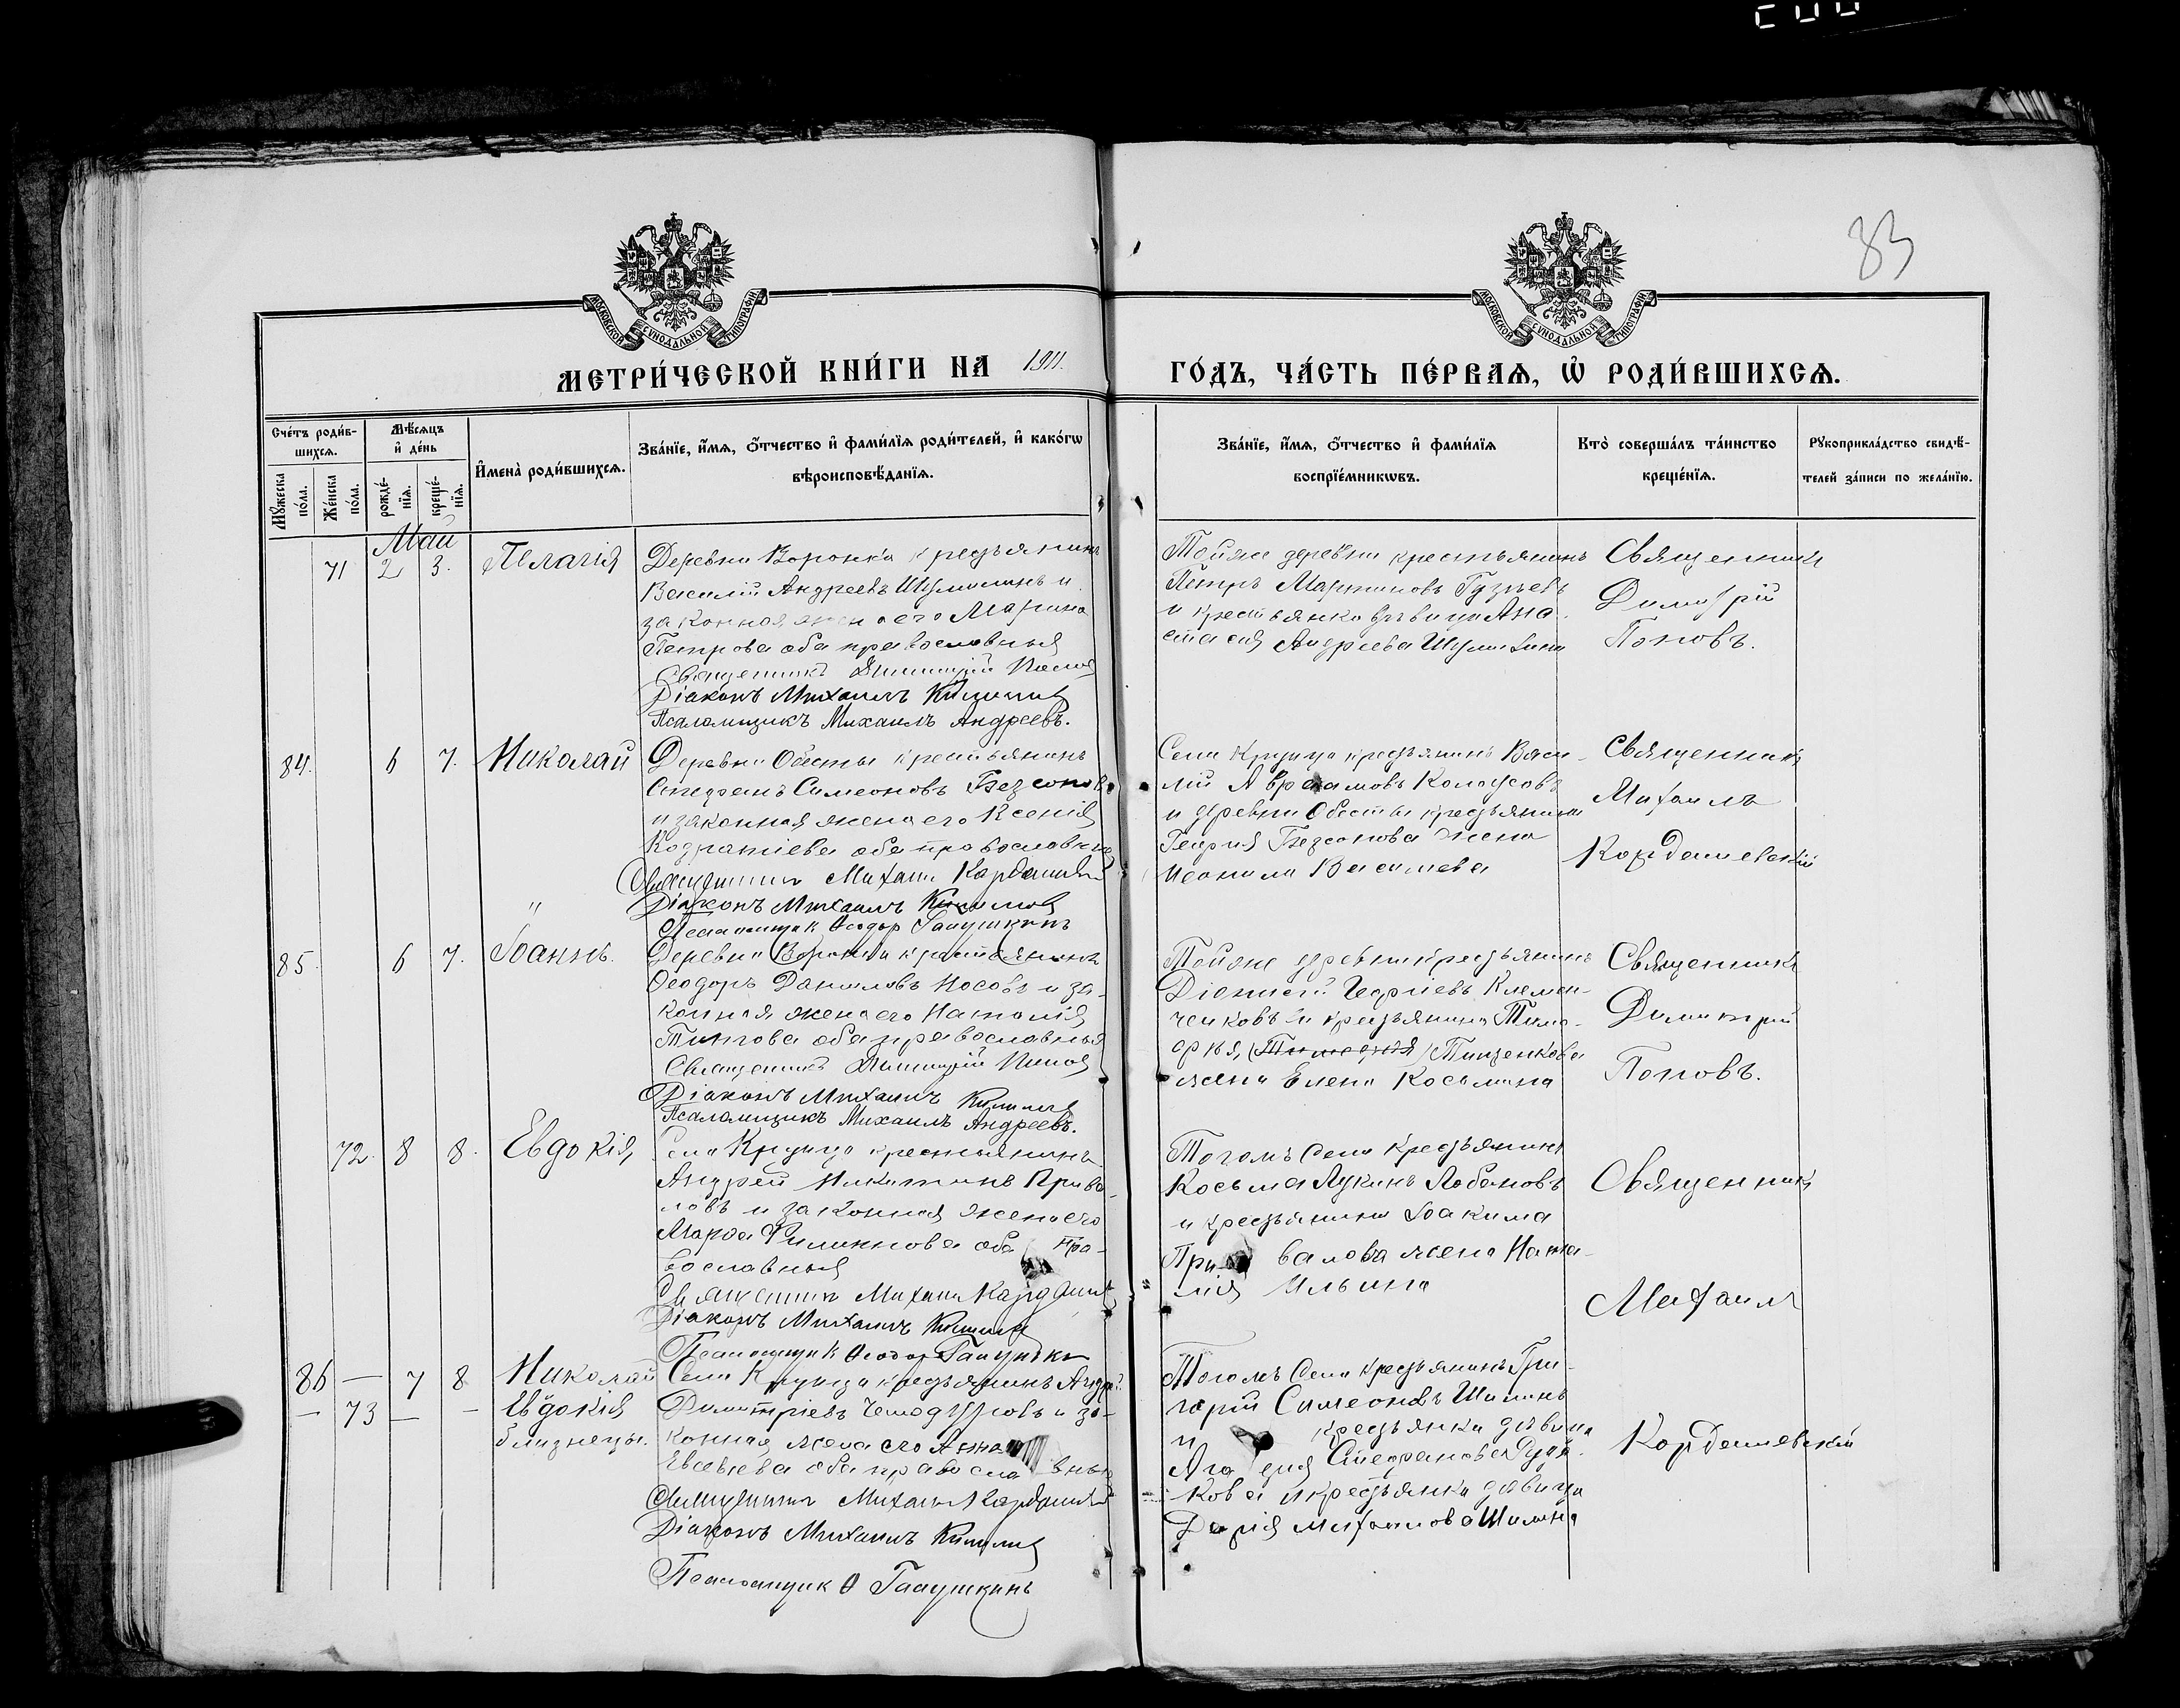 83
МОСКОВСКОЙ СУНОДАЛЬНОЙ ТИПОГРАФІИ
МОСКОВСКОЙ СУНОДАЛЬНОЙ ТИПОГРАФІИ
МЕТРИ́ЧЕСКОЙ КНИ́ГИ НА 1911. ГО́ДЪ, ЧА́СТЬ ПЕ́РВАЯ, Ѡ РОДИ́ВШИХСЯ.
Сче́тъ роди́в-
шихся.
Мꙋ́жеска по́ла.
Же́нска по́ла.
Мѣ́сяцъ
и҆ де́нь
рожде́-
нїя.
креще́-
нїя.
И҆мена̀ роди́вшихся.
Зва́нїе, и҆́мя, ѻ҆́тчество и҆ фами́лїя роди́телей, и҆ како́гѡ
вѣроисповѣ́данїя.
Зва́нїе, и҆́мя, ѻ҆́тчество и҆ фами́лїя
воспрїе́мникѡвъ.
Кто̀ соверша́лъ та́инство
креще́нїя.
Рꙋкоприкла́дство свидѣ́-
телей за́писи по жела́нїю.
Май
71 2 3. Пелагія
Деревни Воронка крестьянинъ
Василій Андреевъ Шулишинъ и
законная жена его Марина
Петрова оба православныя
Священникъ Димитрій Попов
Діаконъ Михаилъ
Псаломщикъ Михаилъ Андреевъ.
Тойже деревни крестьянинъ
Петръ Мартиновъ
и крестьянка дѣвица Ана-
стасія Андреева
Священникъ
Димитрій
Поповъ.
84. 6 7. Николай
Деревни Обесты крестьянинъ
Стефанъ Симеоновъ Безсонов
и законная жена его Ксенія
оба православные
Священникъ Михаил
Діаконъ Михаилъ
Псаломщик Ѳеодор Галушкинъ
Села Крупца крестьянинъ Васи-
лій Авраамовъ Колоусовъ
и деревни Обесты крестьянина
Георгія Безсонова жена
Неонила Василева
Священникъ
Михаилъ
Кордашевскій
"
85. 6 7. Іоаннъ.
Деревни Воронка крестьянинъ
Ѳеодоръ Даниловъ Носовъ и за-
конная жена его Наталія
Титова оба православныя
Священникъ Димитрій Попов
Діаконъ Михаилъ
Псаломщикъ Михаилъ Андреевъ.
Тойже деревни крестьянинъ
Діонисій Георгіевъ Климен-
ченковъ и крестьянина Тимо-
фея, (Тимофея)
жена Елена Косьмина
Священникъ
Димитрій
Поповъ.
72. 8 8. Евдокія,
Села Крупца крестьянинъ
Андрей Никитинъ Прива-
ловъ и законная жена его
Марѳа Филиппова оба пра-
вославныя
Священник Михаил
Діаконъ Михаилъ
Псаломщик Ѳеодор Галушкин
Тогожъ Села крестьянинъ
Косьма Лукинъ Лобановъ
и крестьянина Іоакима
Привалова жена Ната-
лія Ильина
Священникъ
Михаилъ
86 — 7 8 Николай
— 73 — — Евдокія
близнецы.
Села Крупца крестьянинъ Андрей
Димитріевъ Чемодуровъ и за-
конная жена его Анна
Евсеьева оба православныя
Священник Михаил
Діаконъ Михаилъ
Псаломщик Ѳ Галушкинъ
Тогожъ Села крестьянинъ Гри-
горій Симеоновъ Шилинъ
и крестьянка дѣвица
Стефанова Руда-
кова и крестьянка дѣвица
Дарія Михаилова Шилина
Кордашевскій